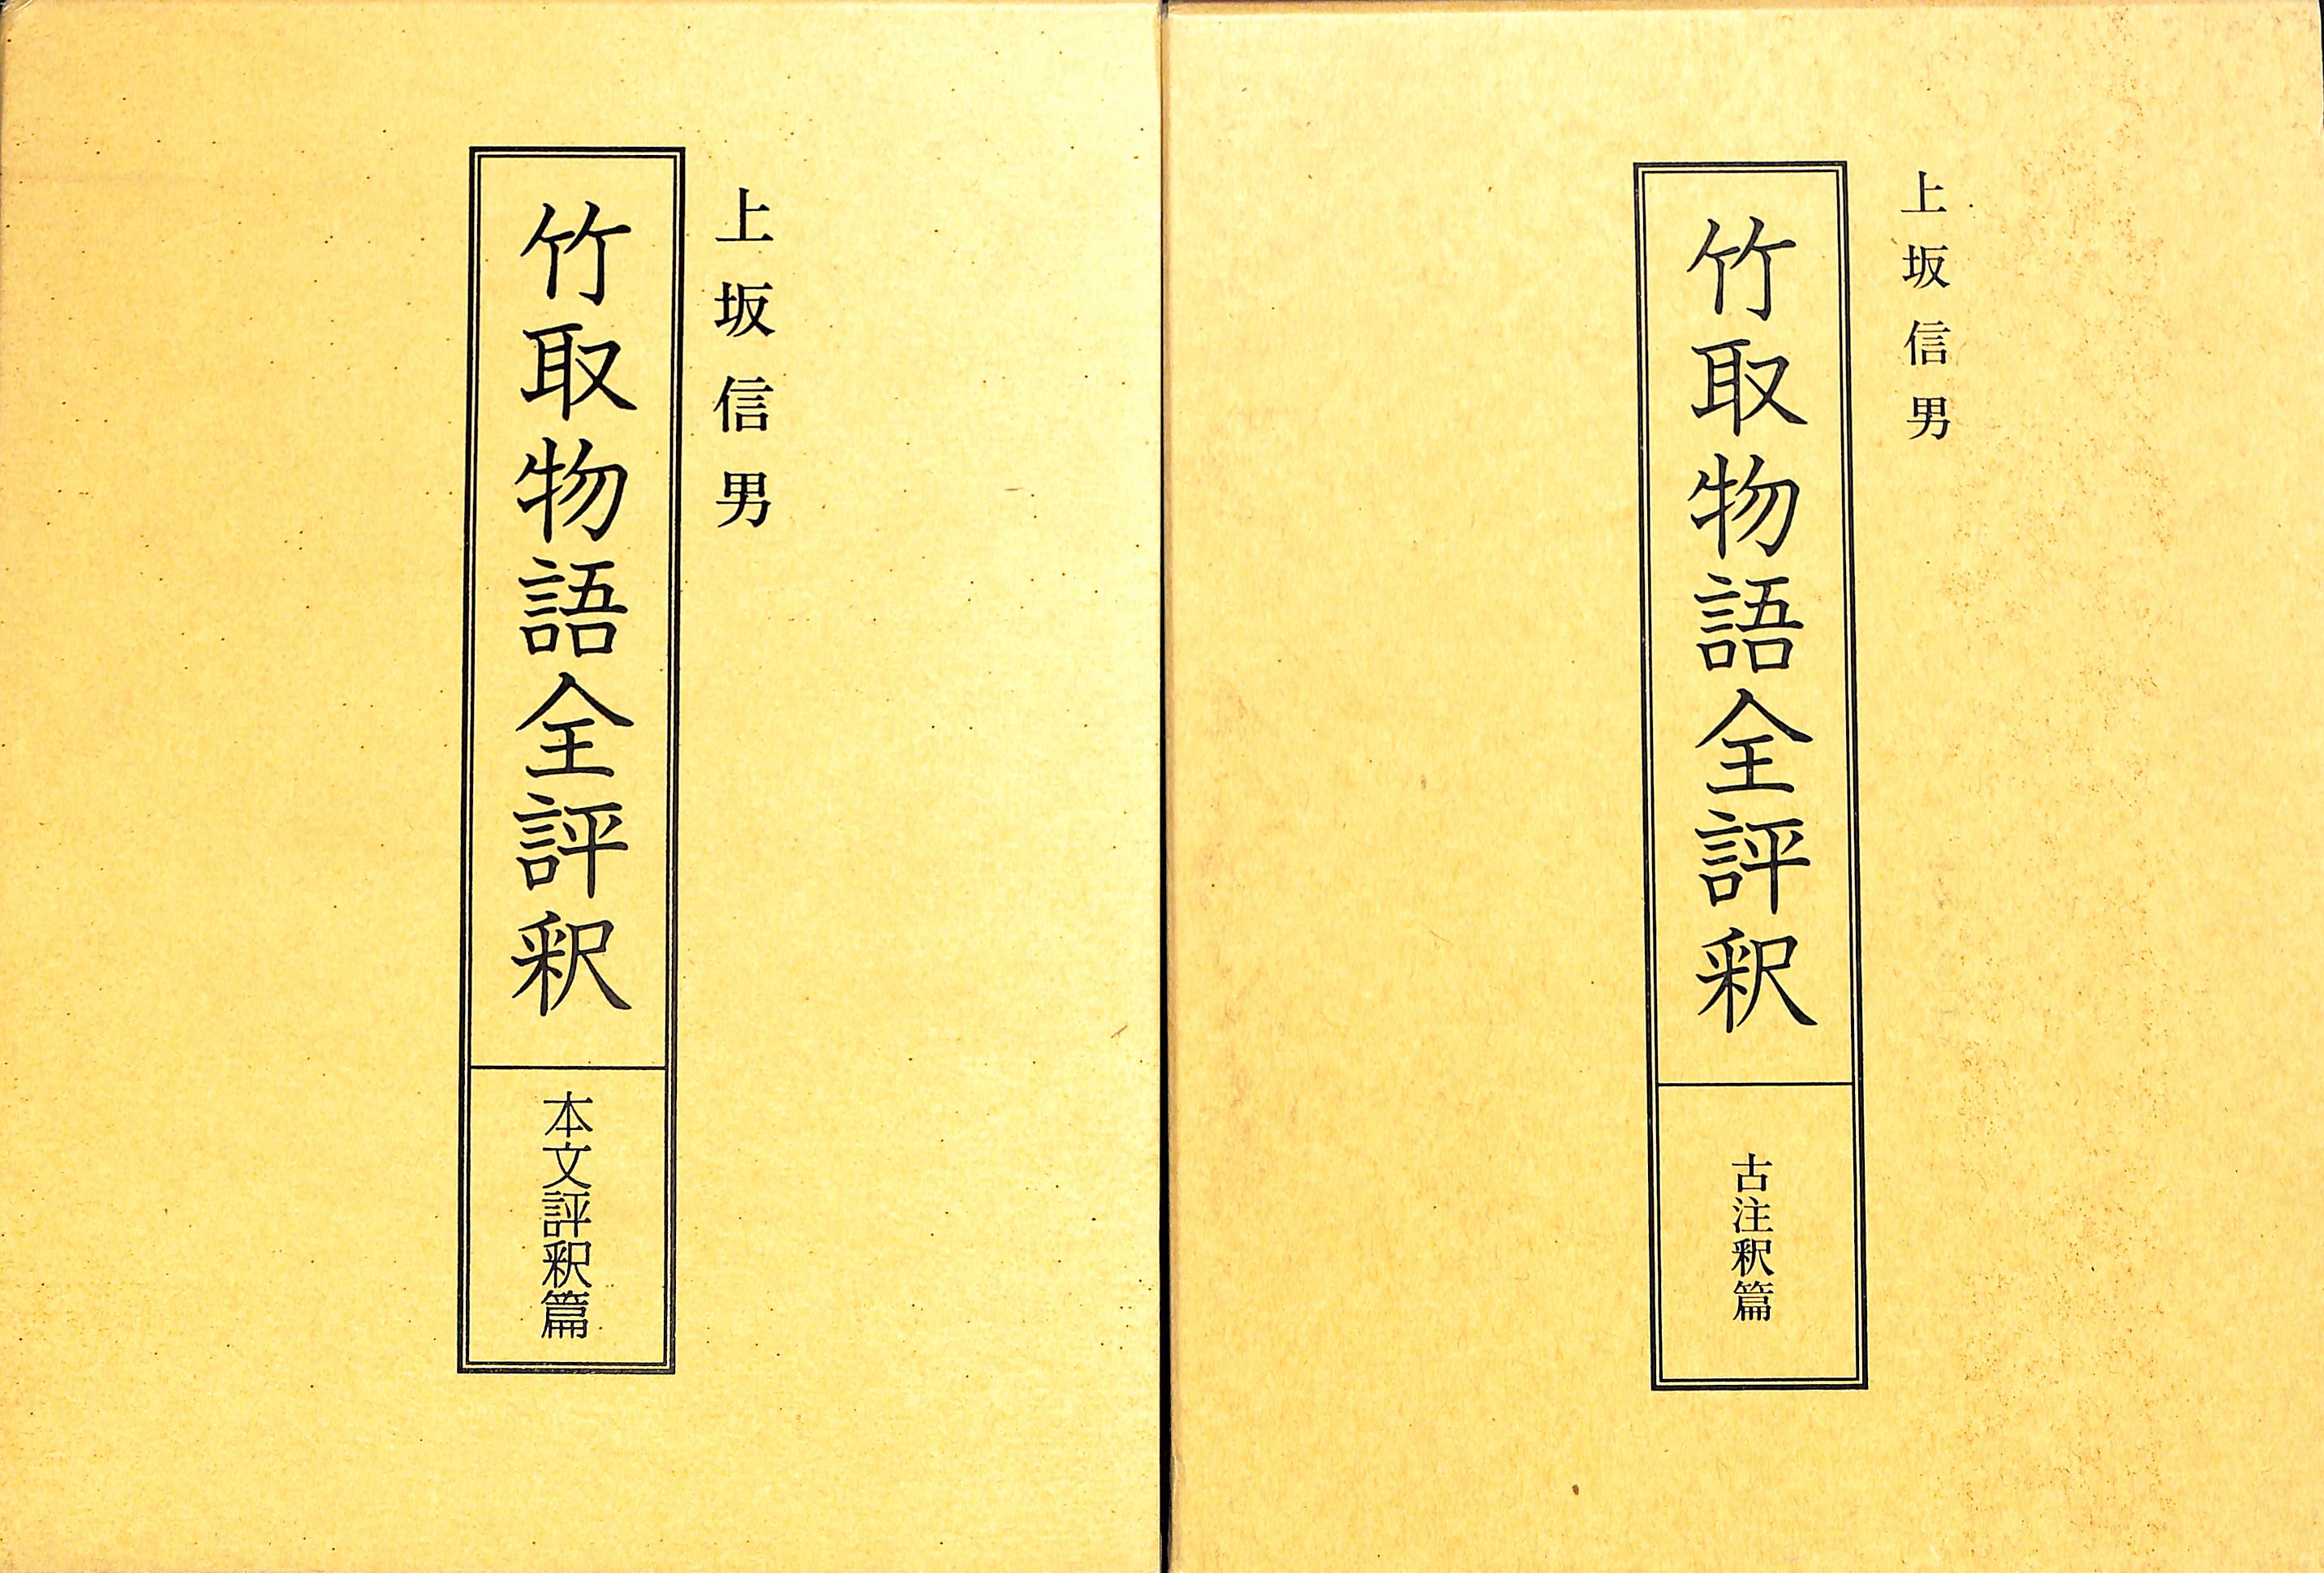 上坂信男
竹取物語全評釈
古注釈篇
上坂信男
竹取物語全評釈
本文評釈篇